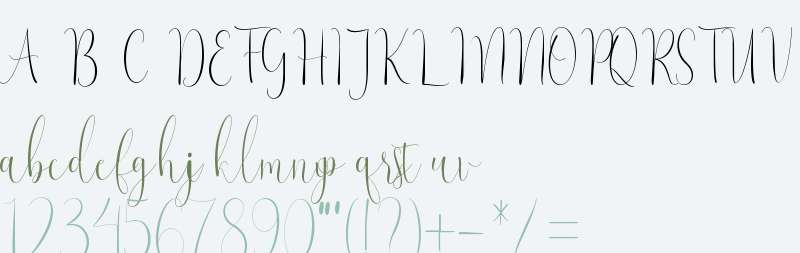 A B C DEFGHIJKLMNOPQRSTUV
abcdefghij klmnop qrst uv
1234567890"'(!?)+-*/=